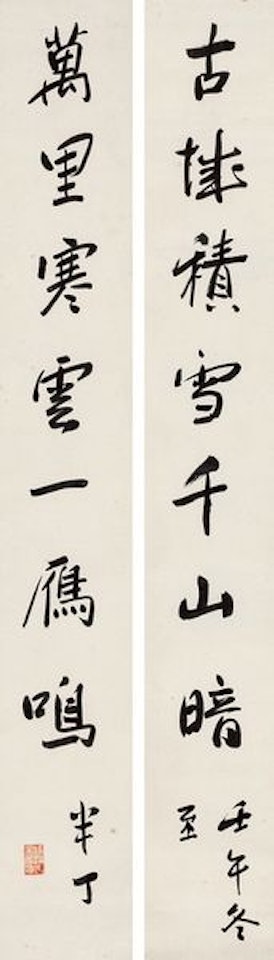 古城積雪千山暗
壬午冬
至
萬里寒雲一鴈鳴
半丁